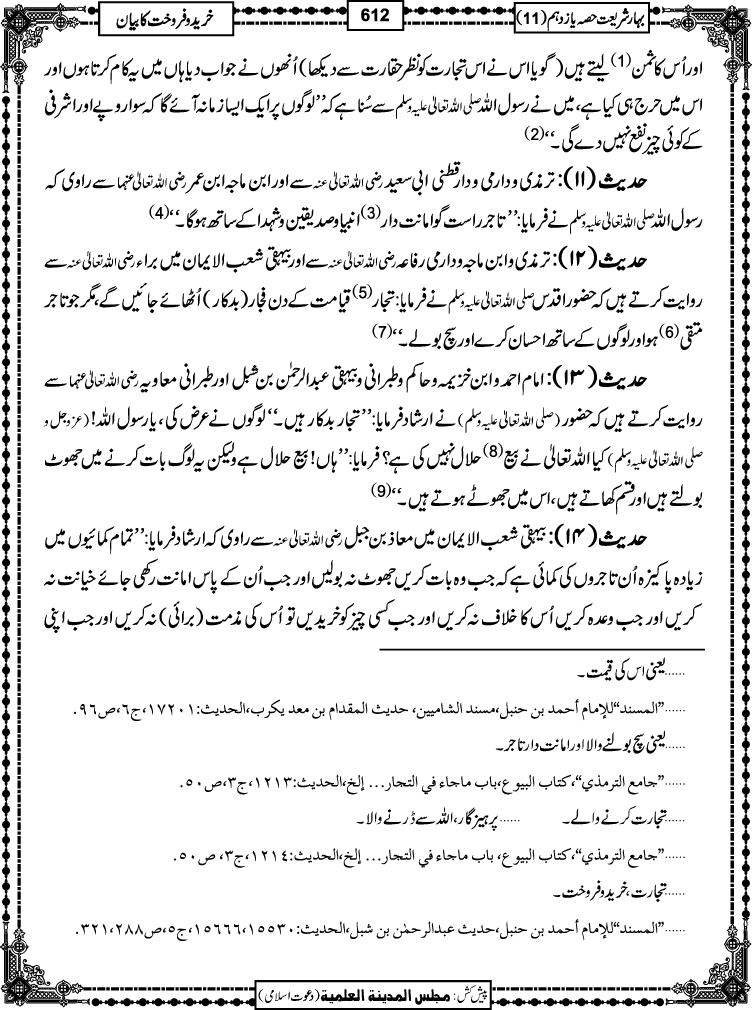 بہارِ شریعت حصہ یازدہم (11)
612
خرید و فروخت کا بیان
اور اُس کا ثمن (1) لیتے ہیں (گویا اس نے اس تجارت کو نظرِ حقارت سے دیکھا) اُنھوں نے جواب دیا ہاں میں یہ کام کرتا ہوں اور
اس میں حرج ہی کیا ہے، میں نے رسول اللہ صلی اللہ تعالیٰ علیہ وسلم سے سُنا ہے کہ ’’لوگوں پر ایک ایسا زمانہ آئے گا کہ سوا روپے اور اشرفی
کے کوئی چیز نفع نہیں دے گی۔‘‘ (2)
حدیث (۱۱): ترمذی و دارمی و دارقطنی ابی سعید رضی اللہ تعالیٰ عنہ سے اور ابن ماجہ ابن عمر رضی اللہ تعالیٰ عنہما سے راوی کہ
رسول اللہ صلی اللہ تعالیٰ علیہ وسلم نے فرمایا: ’’تاجر راست گو امانت دار (3) انبیا و صدیقین و شہدا کے ساتھ ہوگا۔‘‘ (4)
حدیث (۱۲): ترمذی و ابن ماجہ و دارمی رفاعہ رضی اللہ تعالیٰ عنہ سے اور بیہقی شعب الایمان میں براء رضی اللہ تعالیٰ عنہ سے
روایت کرتے ہیں کہ حضور اقدس صلی اللہ تعالیٰ علیہ وسلم نے فرمایا: تجار (5) قیامت کے دن فجار (بدکار) اُٹھائے جائیں گے، مگر جو تاجر
متقی (6) ہو اور لوگوں کے ساتھ احسان کرے اور سچ بولے۔‘‘ (7)
حدیث (۱۳): امام احمد و ابن خزیمہ و حاکم و طبرانی و بیہقی عبدالرحمٰن بن شبل اور طبرانی معاویہ رضی اللہ تعالیٰ عنہما سے
روایت کرتے ہیں کہ حضور (صلی اللہ تعالیٰ علیہ وسلم) نے ارشاد فرمایا: ’’تجار بدکار ہیں۔‘‘ لوگوں نے عرض کی، یارسول اللہ! (عزوجل و
صلی اللہ تعالیٰ علیہ وسلم) کیا اللہ تعالیٰ نے بیع (8) حلال نہیں کی ہے؟ فرمایا: ’’ہاں! بیع حلال ہے ولیکن یہ لوگ بات کرنے میں جھوٹ
بولتے ہیں اور قسم کھاتے ہیں، اس میں جھوٹے ہوتے ہیں۔‘‘ (9)
حدیث (۱۴): بیہقی شعب الایمان میں معاذ بن جبل رضی اللہ تعالیٰ عنہ سے راوی کہ ارشاد فرمایا: ’’تمام کمائیوں میں
زیادہ پاکیزہ اُن تاجروں کی کمائی ہے کہ جب وہ بات کریں جھوٹ نہ بولیں اور جب اُن کے پاس امانت رکھی جائے خیانت نہ
کریں اور جب وعدہ کریں اُس کا خلاف نہ کریں اور جب کسی چیز کو خریدیں تو اُس کی مذمت (برائی) نہ کریں اور جب اپنی
......یعنی اس کی قیمت۔
......’’المسند‘‘ للإمام أحمد بن حنبل، مسند الشاميين، حديث المقدام بن معد يكرب، الحديث: ١٧٢٠١، ج٦، ص٩٦.
......یعنی سچ بولنے والا اور امانت دار تاجر۔
......’’جامع الترمذي‘‘، كتاب البيوع، باب ماجاء في التجار... إلخ، الحديث: ١٢١٣، ج٣، ص٥٠.
......تجارت کرنے والے۔ ......پرہیزگار، اللہ سے ڈرنے والا۔
......’’جامع الترمذي‘‘، كتاب البيوع، باب ماجاء في التجار... إلخ، الحديث: ١٢١٤، ج٣، ص٥٠.
......تجارت، خرید و فروخت۔
......’’المسند‘‘ للإمام أحمد بن حنبل، حديث عبدالرحمٰن بن شبل، الحديث: ١٥٥٣٠، ١٥٦٦٦، ج٥، ص٢٨٨، ٣٢١.
پیش کش: مجلس المدينة العلمية (دعوت اسلامی)